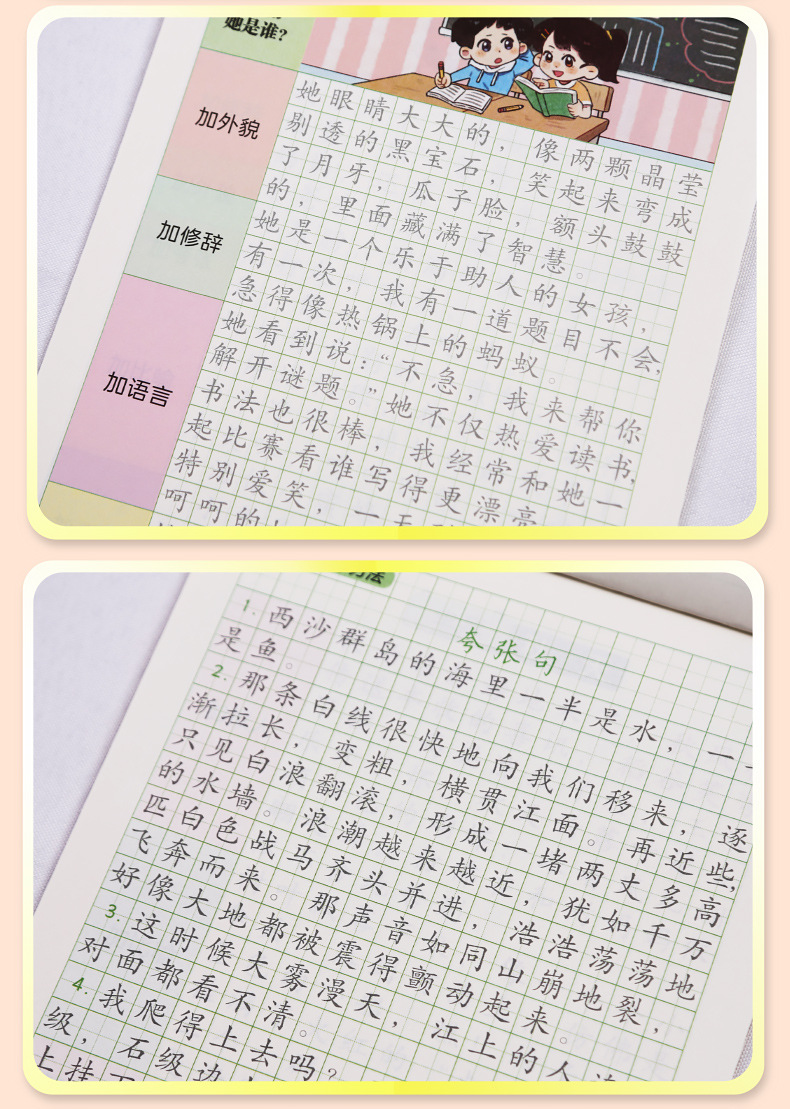 她是谁?
加外貌
她眼睛大大的，像两颗晶莹
别透的黑宝石，笑起来弯成
了月牙，瓜子脸，额头鼓鼓
的，里面藏满了智慧。
加修辞
她是一个乐于助人的女孩，
有一次，我有一道题目不会，
急得像热锅上的蚂蚁。
加语言
她看到说：“不急，我来帮你
解开谜题。”她不仅热爱读书，
书法也很棒，我经常和她一
起比赛看谁写得更漂亮
特别爱笑，一天
呵呵的
方法
夸张句
1. 西沙群岛的海里一半是水，一
是鱼。
2. 那条白线很快地向我们移来，逐
渐拉长，变粗，横贯江面。再近些，
只见白浪翻滚，形成一堵两丈多高
的水墙。浪潮越来越近，犹如千万
匹白色战马齐头并进，浩浩荡荡地
飞奔而来。那声音如同山崩地裂，
好像大地都被震得颤动起来。
3. 这时候大雾漫天，江上的人
对面都看不清。
4. 我爬得上去吗?
级，石级边
上挂